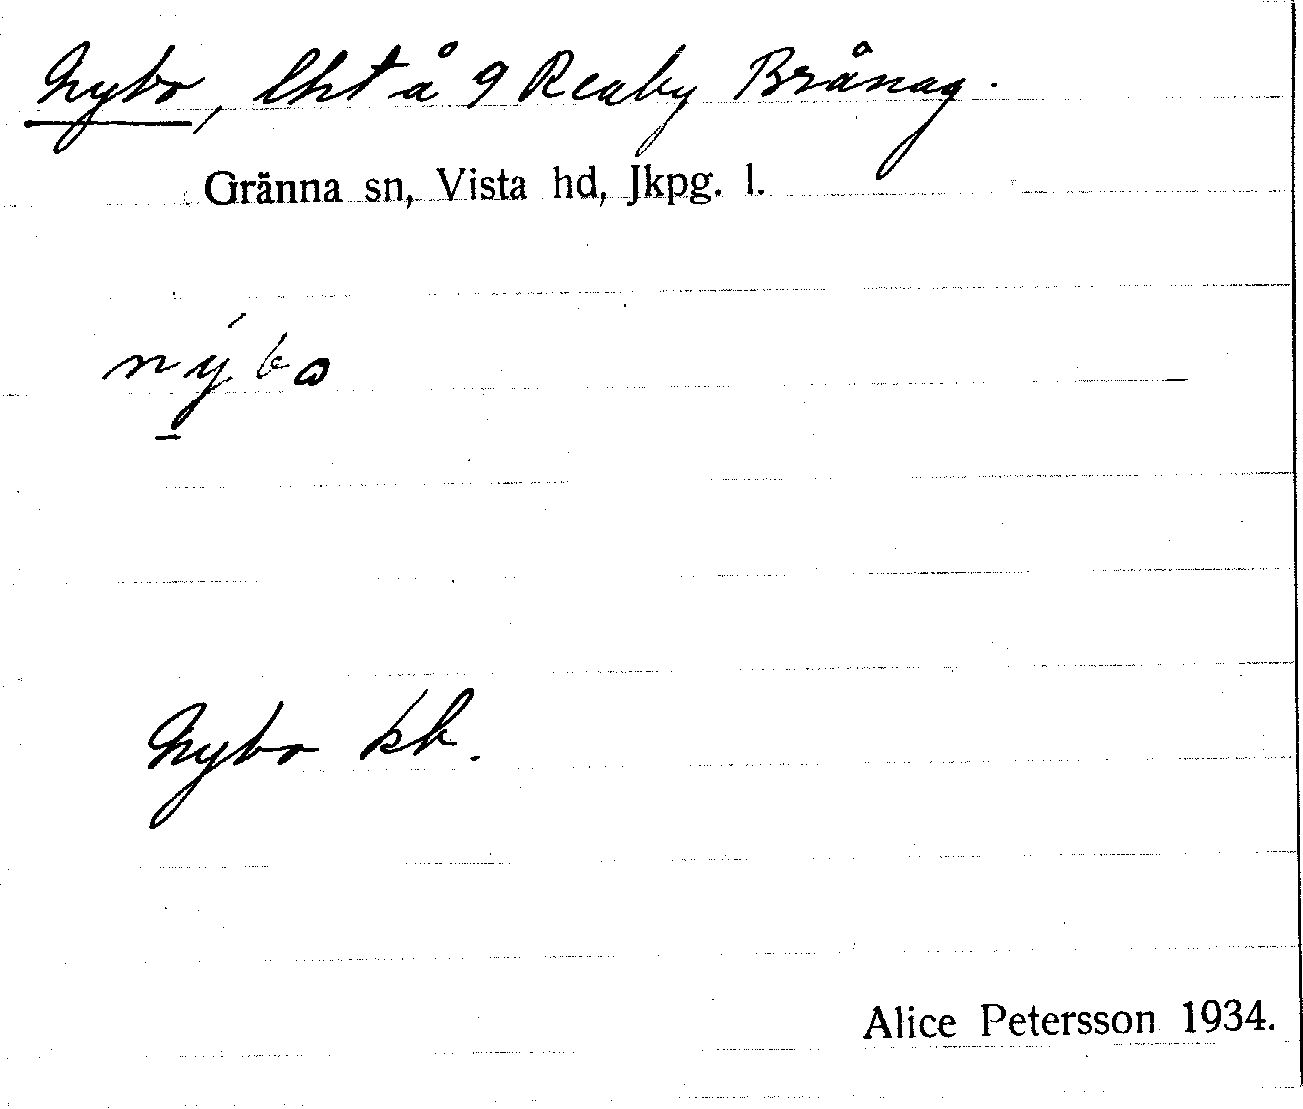 Nybo, lht å 9 Reaby Brånag.
Gränna sn, Vista hd, Jkpg. l.
nýbo
Nybo kb.
Alice Petersson 1934.